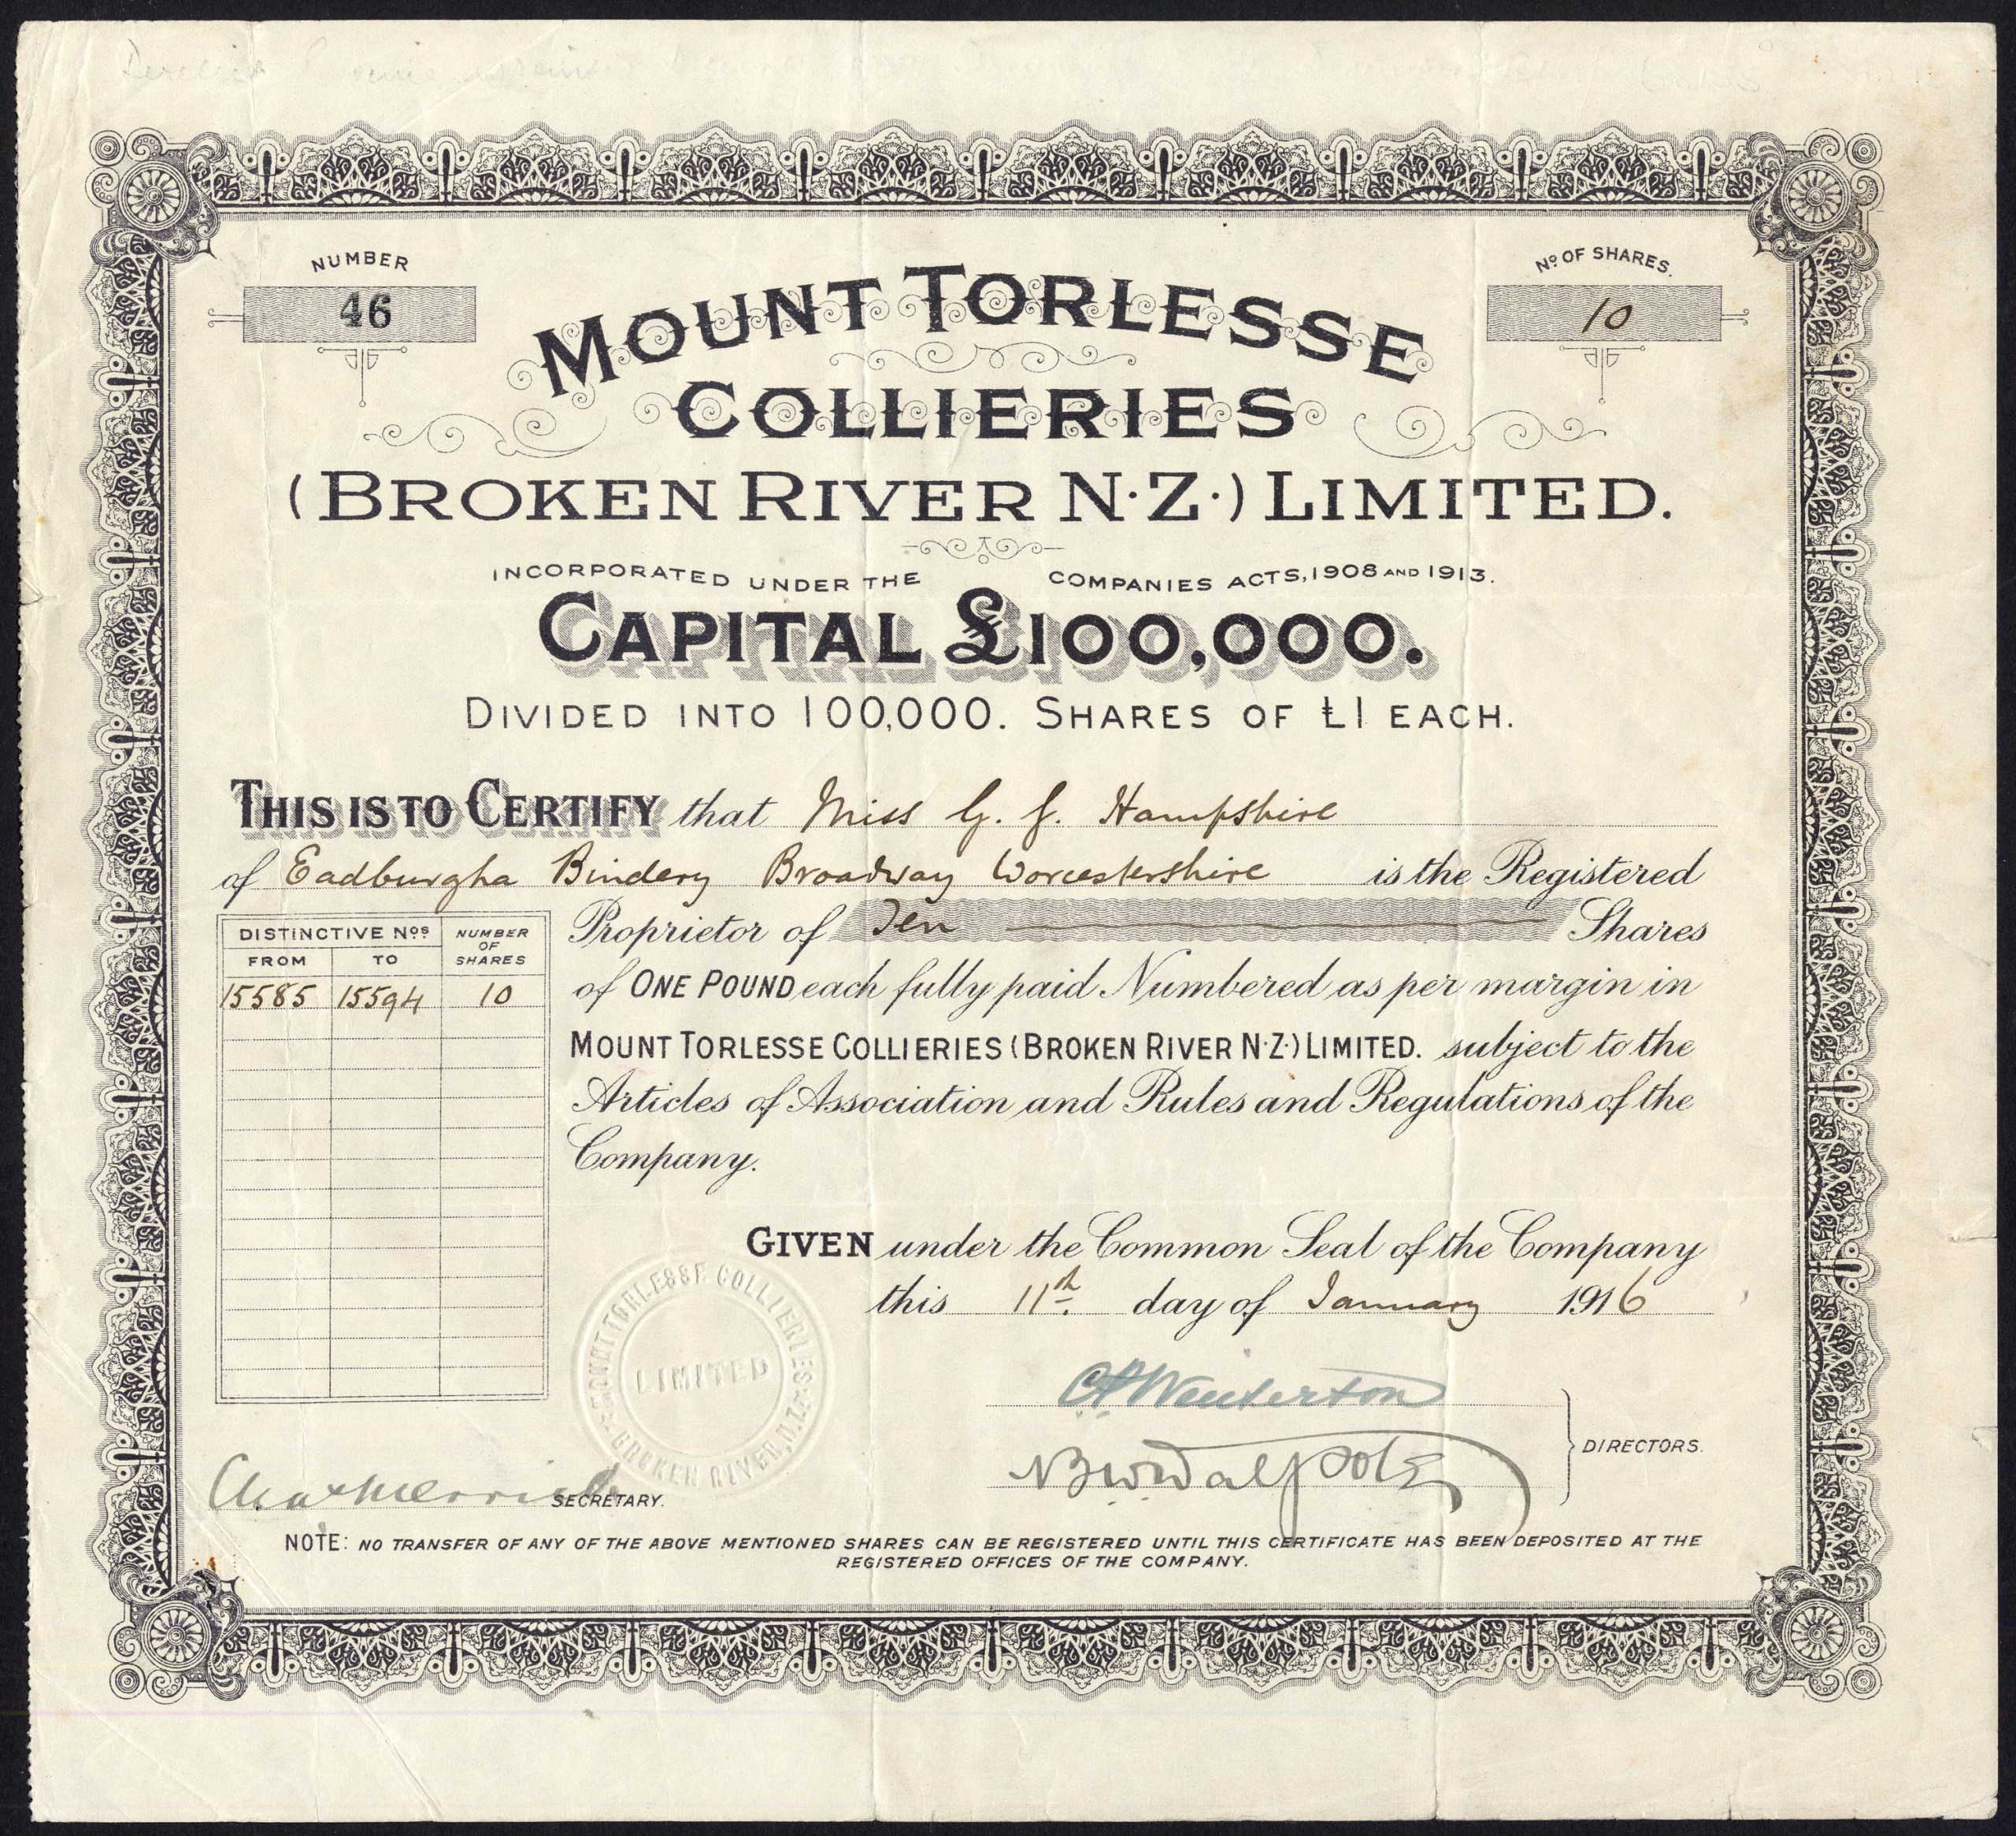 NUMBER
46
Nº OF SHARES.
10
MOUNT TORLESSE
COLLIERIES
(BROKEN RIVER N.Z.) LIMITED.
INCORPORATED UNDER THE COMPANIES ACTS, 1908 AND 1913.
CAPITAL £100,000.
DIVIDED INTO 100,000. SHARES OF £1 EACH.
THIS IS TO CERTIFY that Miss G. J. Hampshire
of Eadburgha Bindery Broadway Worcestershire is the Registered
Proprietor of Ten Shares
of ONE POUND each fully paid Numbered as per margin in
MOUNT TORLESSE COLLIERIES (BROKEN RIVER N.Z.) LIMITED. subject to the
Articles of Association and Rules and Regulations of the
Company.
DISTINCTIVE Nos NUMBER OF SHARES
FROM TO
15585 15594 10
GIVEN under the Common Seal of the Company
this 11th. day of January 1916
MOUNT TORLESSE COLLIERIES
LIMITED
BROKEN RIVER, N.Z.
Winterton
N B W Walpole
DIRECTORS.
Merrick
SECRETARY.
NOTE: NO TRANSFER OF ANY OF THE ABOVE MENTIONED SHARES CAN BE REGISTERED UNTIL THIS CERTIFICATE HAS BEEN DEPOSITED AT THE
REGISTERED OFFICES OF THE COMPANY.